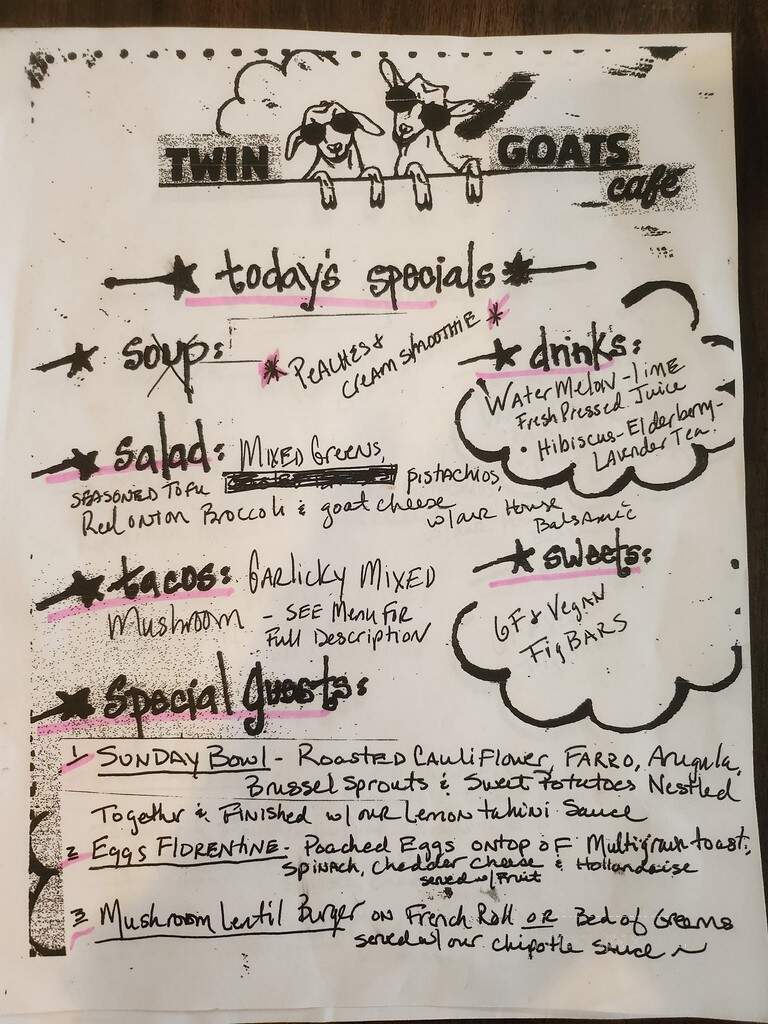 TWIN GOATS
café
today's specials
soup:
* PEACHES &
CREAM SMOOTHIE *
drinks:
WaterMelon-Lime
Fresh Pressed Juice
• Hibiscus-Elderberry-
Lavender Tea.
salad: Mixed Greens,
SEASONED TOFU pistachios,
Red onion Broccoli & goat cheese
w/our House
Balsamic
tacos: Garlicky Mixed
Mushroom - SEE Menu For
Full Description
sweets:
GF & Vegan
Fig BARS
Special guests:
1 SUNDAY Bowl - Roasted Cauliflower, FARRO, Arugula,
Brussel Sprouts & Sweet Potatoes Nestled
Together & Finished w/our Lemon tahini Sauce
2 Eggs FLORENTINE - Poached Eggs ontop of Multigrain toast,
Spinach, Cheddar Cheese & Hollandaise
served w/Fruit
3 Mushroom Lentil Burger on French Roll OR Bed of Greens
served w/our chipotle sauce ~